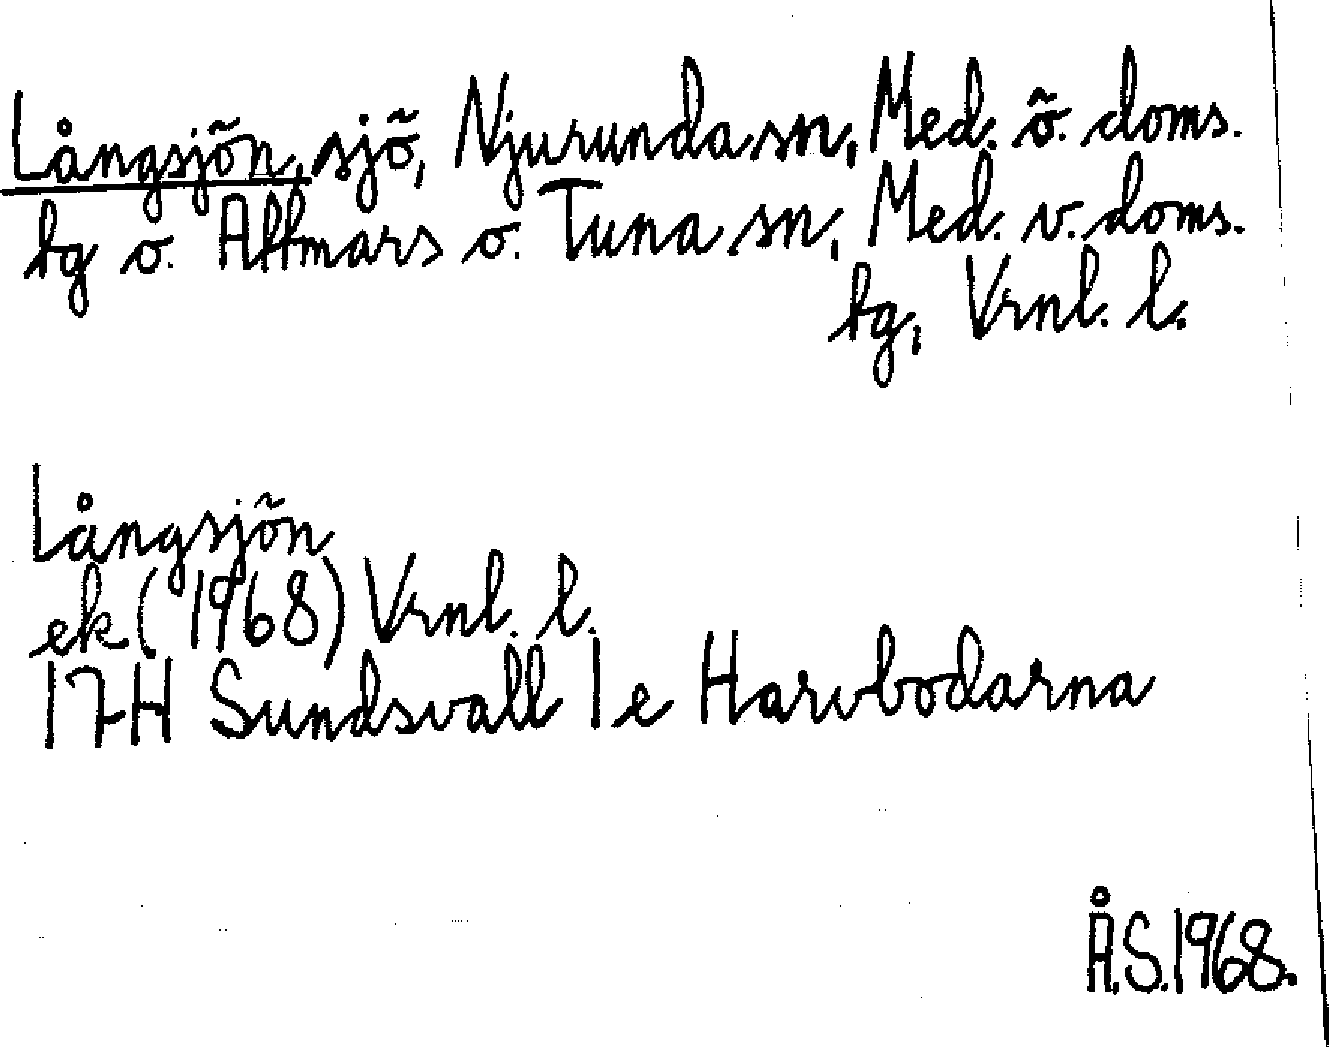 Långsjön, sjö, Njurunda sn, Med. ö. doms.
tg o. Attmars o. Tuna sn, Med. v. doms.
tg, Vrnl. l.
Långsjön
ek (1968) Vrnl. l.
17H Sundsvall 1e Harvbodarna
Å.S. 1968.